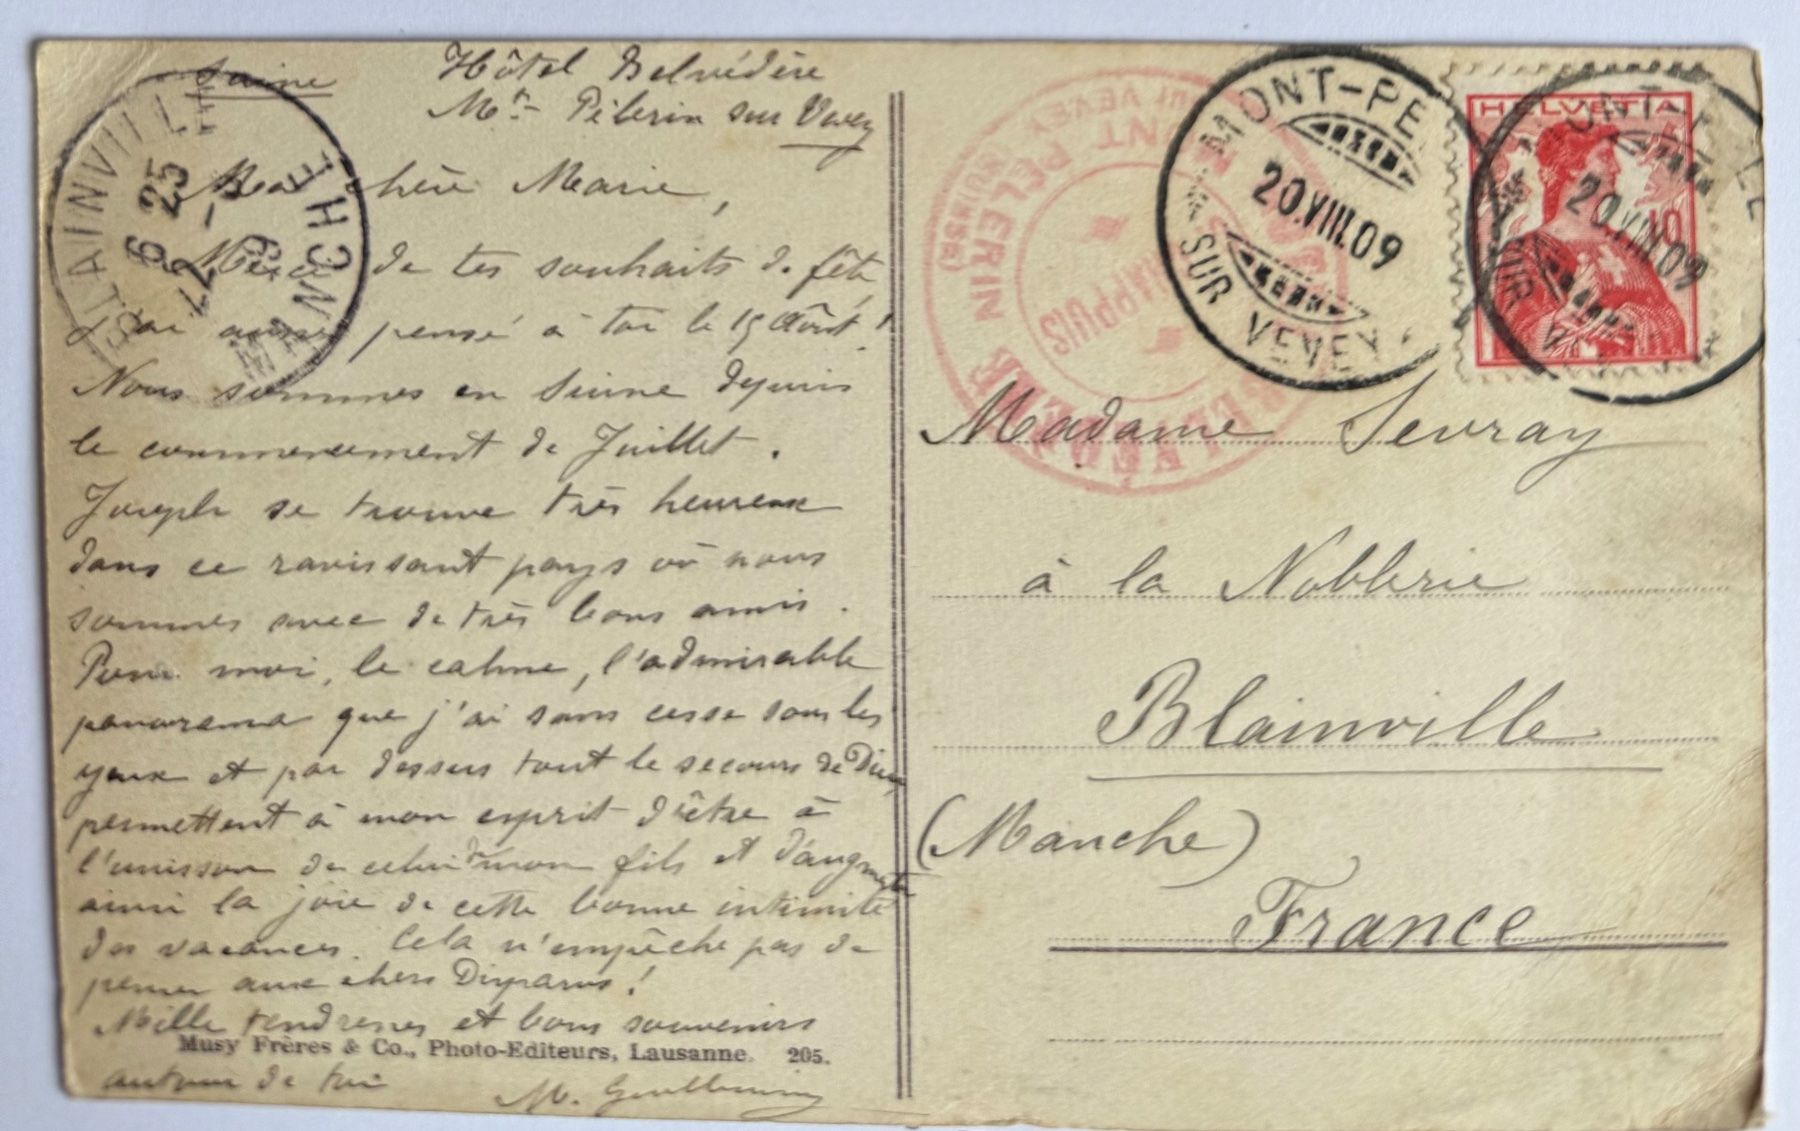 Suisse
Hôtel Belvédère
Mt Pèlerin sur Vevey
Ma chère Marie,
Merci de tes souhaits de fête
J'ai aussi pensé à toi le 15 Août !
Nous sommes en Suisse depuis
le commencement de Juillet.
Joseph se trouve très heureux
dans ce ravissant pays où nous
sommes avec de très bons amis.
Pour moi, le calme, l'admirable
panorama que j'ai sans cesse sous les
yeux et par dessus tout le secours de Dieu,
permettent à mon esprit d'être à
l'unisson de celui de mon fils et d'augmenter
ainsi la joie de cette bonne intimité
des vacances. Cela n'empêche pas de
penser aux chers Disparus !
Mille tendresses et bons souvenirs
Musy Frères & Co., Photo-Editeurs, Lausanne. 205.
autour de toi
M.
BLAINVILLE
MANCHE
6 25
22 - 8
09
BELVÉDÈRE
MONT PÉLERIN
SUR VEVEY
(SUISSE)
CHAPPUIS
MONT-PÉLERIN
20.VIII.09
SUR VEVEY
HELVETIA
10
MONT-PÉLERIN
20.VIII.09
SUR VEVEY
Madame Sevray
à la Noblerie
Blainville
(Manche)
France